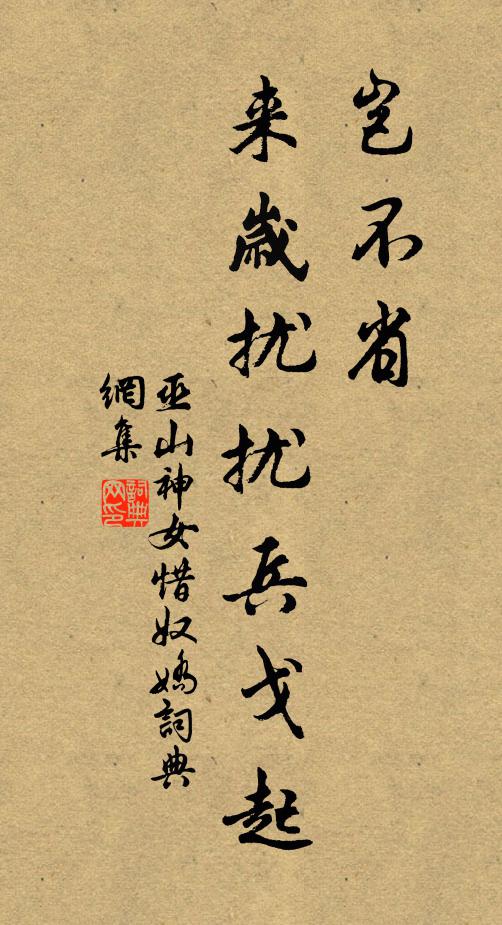 岂不省
来岁扰扰兵戈起
巫山神女惜奴娇詞典
網集
詞典
网印